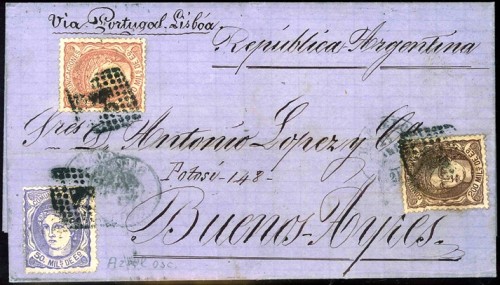 Via Portugal-Lisbóa
República Argentina
Sres Ds. Antonio Lopez y Ca
Potosí-148-
Buenos-Ayres.
50 MILS DE Eo